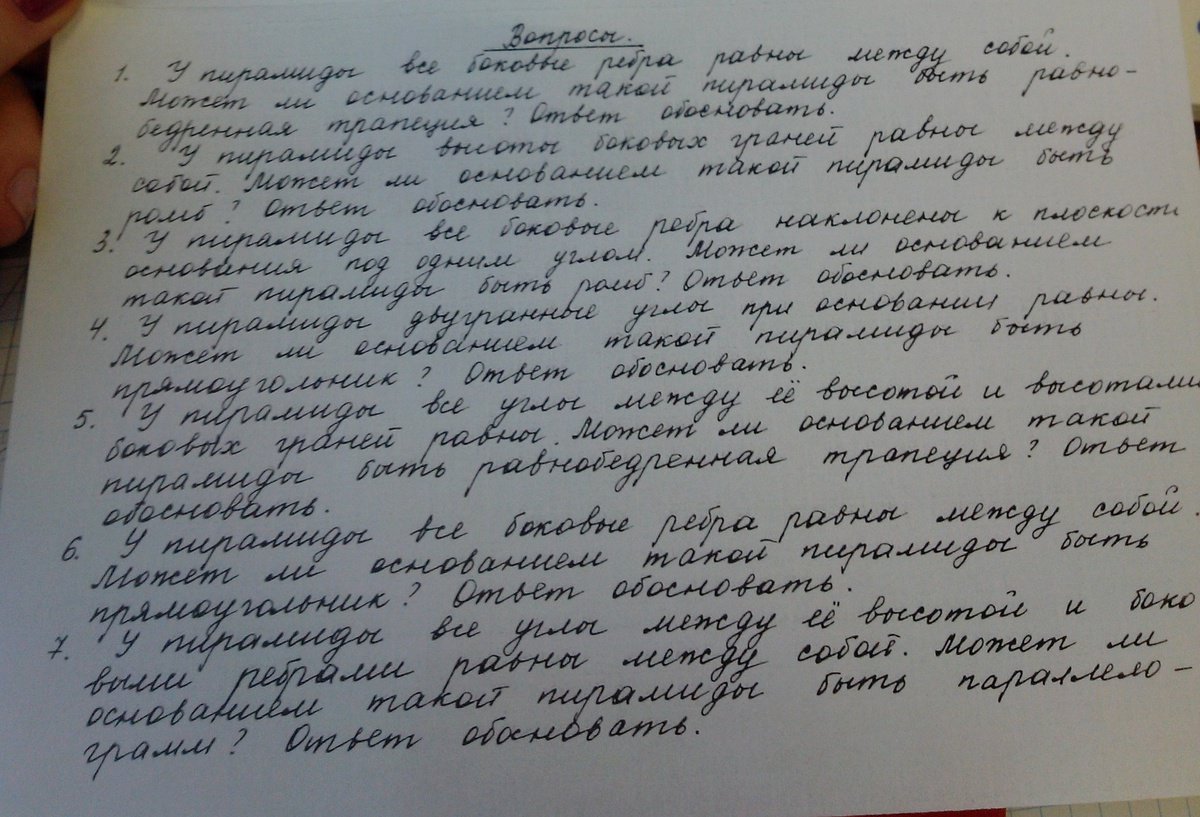 Вопросы.
1. У пирамиды все боковые ребра равны между собой.
Может ли основанием такой пирамиды быть равно-
бедренная трапеция? Ответ обосновать.
2. У пирамиды высоты боковых граней равны между
собой. Может ли основанием такой пирамиды быть
ромб? Ответ обосновать.
3. У пирамиды все боковые ребра наклонены к плоскости
основания под одним углом. Может ли основанием
такой пирамиды быть ромб? Ответ обосновать.
4. У пирамиды двугранные углы при основании равны.
Может ли основанием такой пирамиды быть
прямоугольник? Ответ обосновать.
5. У пирамиды все углы между её высотой и высотами
боковых граней равны. Может ли основанием такой
пирамиды быть равнобедренная трапеция? Ответ
обосновать.
6. У пирамиды все боковые ребра равны между собой.
Может ли основанием такой пирамиды быть
прямоугольник? Ответ обосновать.
7. У пирамиды все углы между её высотой и боко
выми ребрами равны между собой. Может ли
основанием такой пирамиды быть параллело-
грамм? Ответ обосновать.